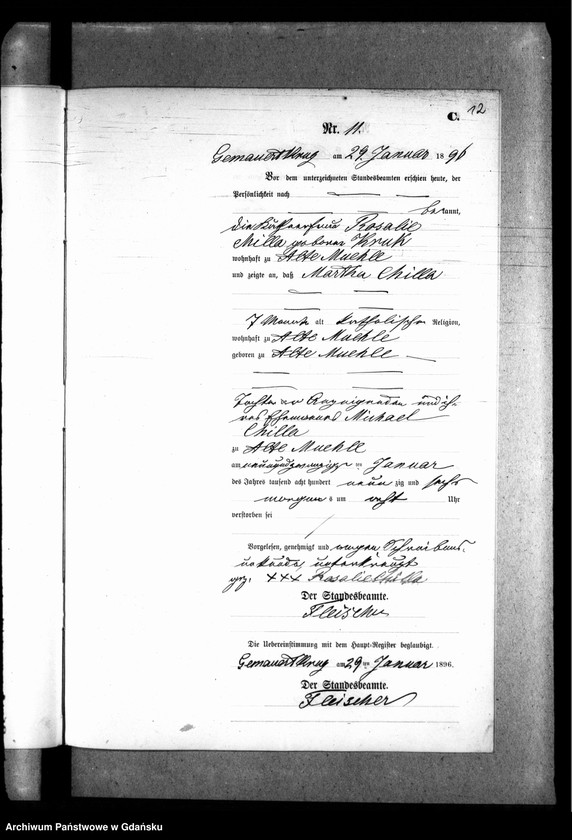 12
C.
Nr. 11.
Gemauert Krug am 29. Januar 1896
Vor dem unterzeichneten Standesbeamten erschien heute, der
Persönlichkeit nach
bekannt,
die Käthnerfrau Rosalie
Chilla geboren Kruk
wohnhaft zu Alte Muehle
und zeigte an, daß Martha Chilla
7 Monate alt katholischer Religion,
wohnhaft zu Alte Muehle
geboren zu Alte Muehle
Tochter der Anzeigenden und ih-
res Ehemannes Michael
Chilla
zu Alte Muehle
am neunundzwanzigsten Januar
des Jahres tausend acht hundert neunzig und sechs
morgens um acht Uhr
verstorben sei
Vorgelesen, genehmigt und wegen Schreibens-
unkunde unterkreuzt
gez. +++ Rosalie Chilla
Der Standesbeamte.
Fleischer
Die Uebereinstimmung mit dem Haupt-Register beglaubigt.
Gemauert Krug am 29ten Januar 1896.
Der Standesbeamte.
Fleischer
Archiwum Państwowe w Gdańsku